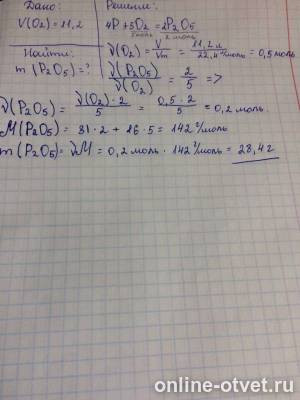 Дано:
V(O₂) = 11,2
Найти:
m (P₂O₅) = ?
Решение:
4P + 5O₂ = 2P₂O₅
5моль 2 моль
ν(O₂) = V/Vm = 11,2 л / 22,4 л/моль = 0,5 моль
ν(P₂O₅) / ν(O₂) = 2/5 =>
ν(P₂O₅) = ν(O₂) · 2 / 5 = 0,5 · 2 / 5 = 0,2 моль.
M(P₂O₅) = 31 · 2 + 16 · 5 = 142 г/моль
m(P₂O₅) = νM = 0,2 моль · 142 г/моль = 28,4 г
online-otvet.ru